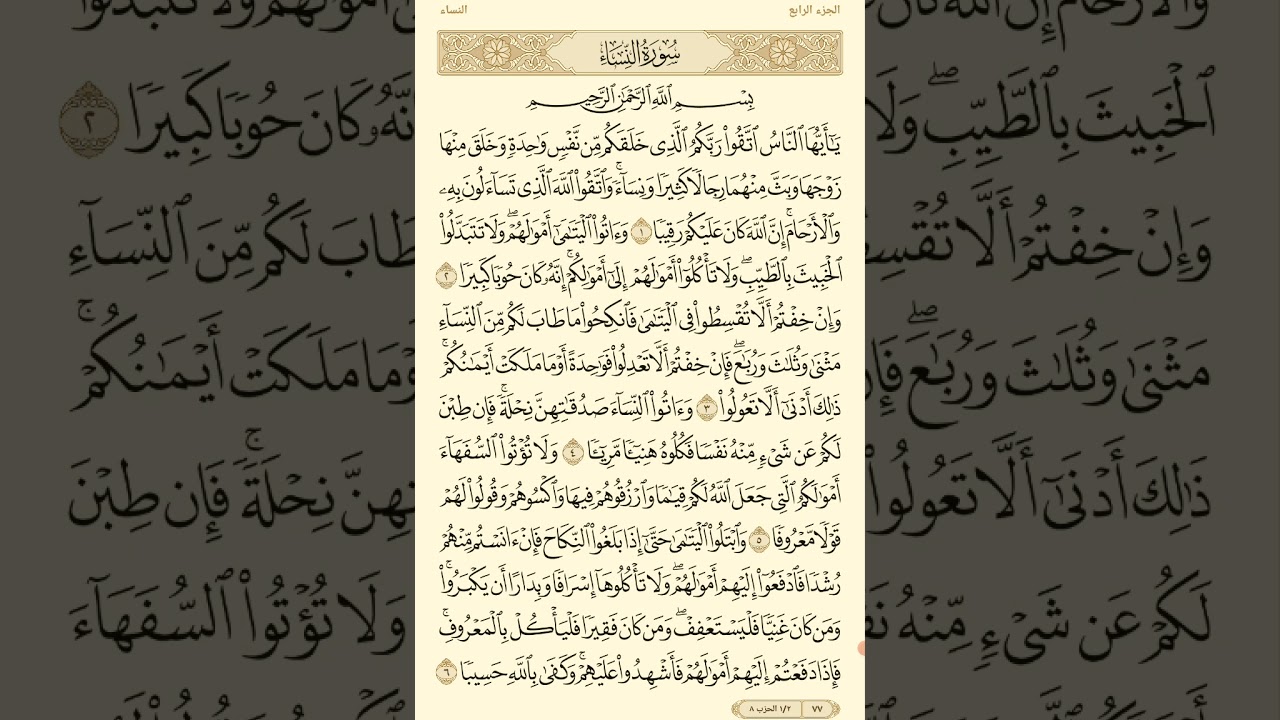 الجزء الرابع
النساء
سُورَةُ النِّسَاءِ
بِسْمِ ٱللَّهِ ٱلرَّحْمَٰنِ ٱلرَّحِيمِ
يَٰٓأَيُّهَا ٱلنَّاسُ ٱتَّقُوا۟ رَبَّكُمُ ٱلَّذِى خَلَقَكُم مِّن نَّفْسٍ وَٰحِدَةٍ وَخَلَقَ مِنْهَا
زَوْجَهَا وَبَثَّ مِنْهُمَا رِجَالًا كَثِيرًا وَنِسَآءً ۚ وَٱتَّقُوا۟ ٱللَّهَ ٱلَّذِى تَسَآءَلُونَ بِهِۦ
وَٱلْأَرْحَامَ ۚ إِنَّ ٱللَّهَ كَانَ عَلَيْكُمْ رَقِيبًا ١ وَءَاتُوا۟ ٱلْيَتَٰمَىٰٓ أَمْوَٰلَهُمْ ۖ وَلَا تَتَبَدَّلُوا۟
ٱلْخَبِيثَ بِٱلطَّيِّبِ ۖ وَلَا تَأْكُلُوٓا۟ أَمْوَٰلَهُمْ إِلَىٰٓ أَمْوَٰلِكُمْ ۚ إِنَّهُۥ كَانَ حُوبًا كَبِيرًا ٢
وَإِنْ خِفْتُمْ أَلَّا تُقْسِطُوا۟ فِى ٱلْيَتَٰمَىٰ فَٱنكِحُوا۟ مَا طَابَ لَكُم مِّنَ ٱلنِّسَآءِ
مَثْنَىٰ وَثُلَٰثَ وَرُبَٰعَ ۖ فَإِنْ خِفْتُمْ أَلَّا تَعْدِلُوا۟ فَوَٰحِدَةً أَوْ مَا مَلَكَتْ أَيْمَٰنُكُمْ ۚ
ذَٰلِكَ أَدْنَىٰٓ أَلَّا تَعُولُوا۟ ٣ وَءَاتُوا۟ ٱلنِّسَآءَ صَدُقَٰتِهِنَّ نِحْلَةً ۚ فَإِن طِبْنَ
لَكُمْ عَن شَىْءٍ مِّنْهُ نَفْسًا فَكُلُوهُ هَنِيٓـًٔا مَّرِيٓـًٔا ٤ وَلَا تُؤْتُوا۟ ٱلسُّفَهَآءَ
أَمْوَٰلَكُمُ ٱلَّتِى جَعَلَ ٱللَّهُ لَكُمْ قِيَٰمًا وَٱرْزُقُوهُمْ فِيهَا وَٱكْسُوهُمْ وَقُولُوا۟ لَهُمْ
قَوْلًا مَّعْرُوفًا ٥ وَٱبْتَلُوا۟ ٱلْيَتَٰمَىٰ حَتَّىٰٓ إِذَا بَلَغُوا۟ ٱلنِّكَاحَ فَإِنْ ءَانَسْتُم مِّنْهُمْ
رُشْدًا فَٱدْفَعُوٓا۟ إِلَيْهِمْ أَمْوَٰلَهُمْ ۖ وَلَا تَأْكُلُوهَآ إِسْرَافًا وَبِدَارًا أَن يَكْبَرُوا۟ ۚ
وَمَن كَانَ غَنِيًّا فَلْيَسْتَعْفِفْ ۖ وَمَن كَانَ فَقِيرًا فَلْيَأْكُلْ بِٱلْمَعْرُوفِ ۚ
فَإِذَا دَفَعْتُمْ إِلَيْهِمْ أَمْوَٰلَهُمْ فَأَشْهِدُوا۟ عَلَيْهِمْ ۚ وَكَفَىٰ بِٱللَّهِ حَسِيبًا ٦
٧٧ ١/٢ الحزب ٨